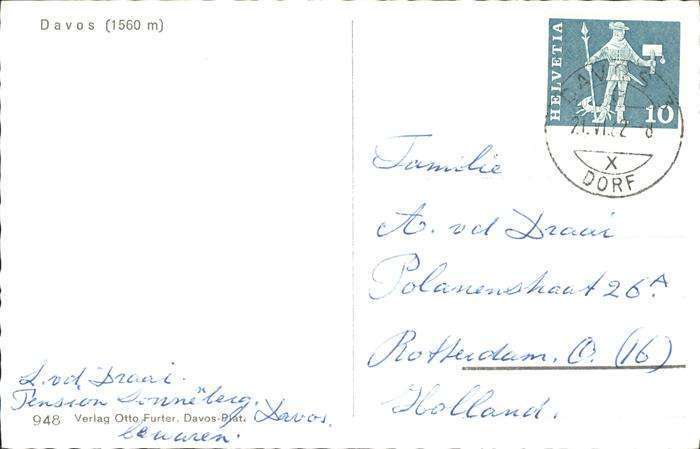 Davos (1560 m)
HELVETIA
10
DAVOS
21.VI.62-8
X
DORF
Familie
A. vd Draai
Polanenstraat 26A
Rotterdam. O. (16)
Holland.
L. vd Draai.
Pension Sonneberg.
Davos.
948 Verlag Otto Furter. Davos-Plat.
bewaren.